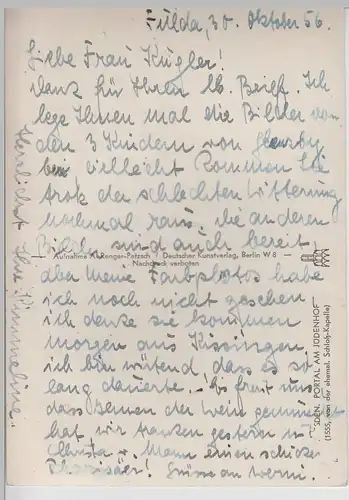 Fulda, 30. Oktober 56.
Liebe Frau Kugler!
Dank für Ihren lb. Brief. Ich
lege Ihnen mal die Bilder von
den 3 Kindern von
bei, vielleicht kommen Sie
trotz der schlechten Witterung
nochmal raus. Die anderen
Bilder sind auch bereit,
Aufnahme A. Renger-Patzsch · Deutscher Kunstverlag, Berlin W 8
Nachdruck verboten
aber meine Farbphotos habe
ich noch nicht gesehen
ich denke sie kommen
morgen aus Kissingen.
ich bin wütend, dass es so
lang dauerte. Es freut uns
dass Ihnen der Wein gemundet
hat wir tranken gestern mit
Christa + Mann einen schicken
Grüsse an
Herzlichst Ihre
SDEN. PORTAL AM JÜDENHOF
(1555, von der ehemal. Schloß-Kapelle)